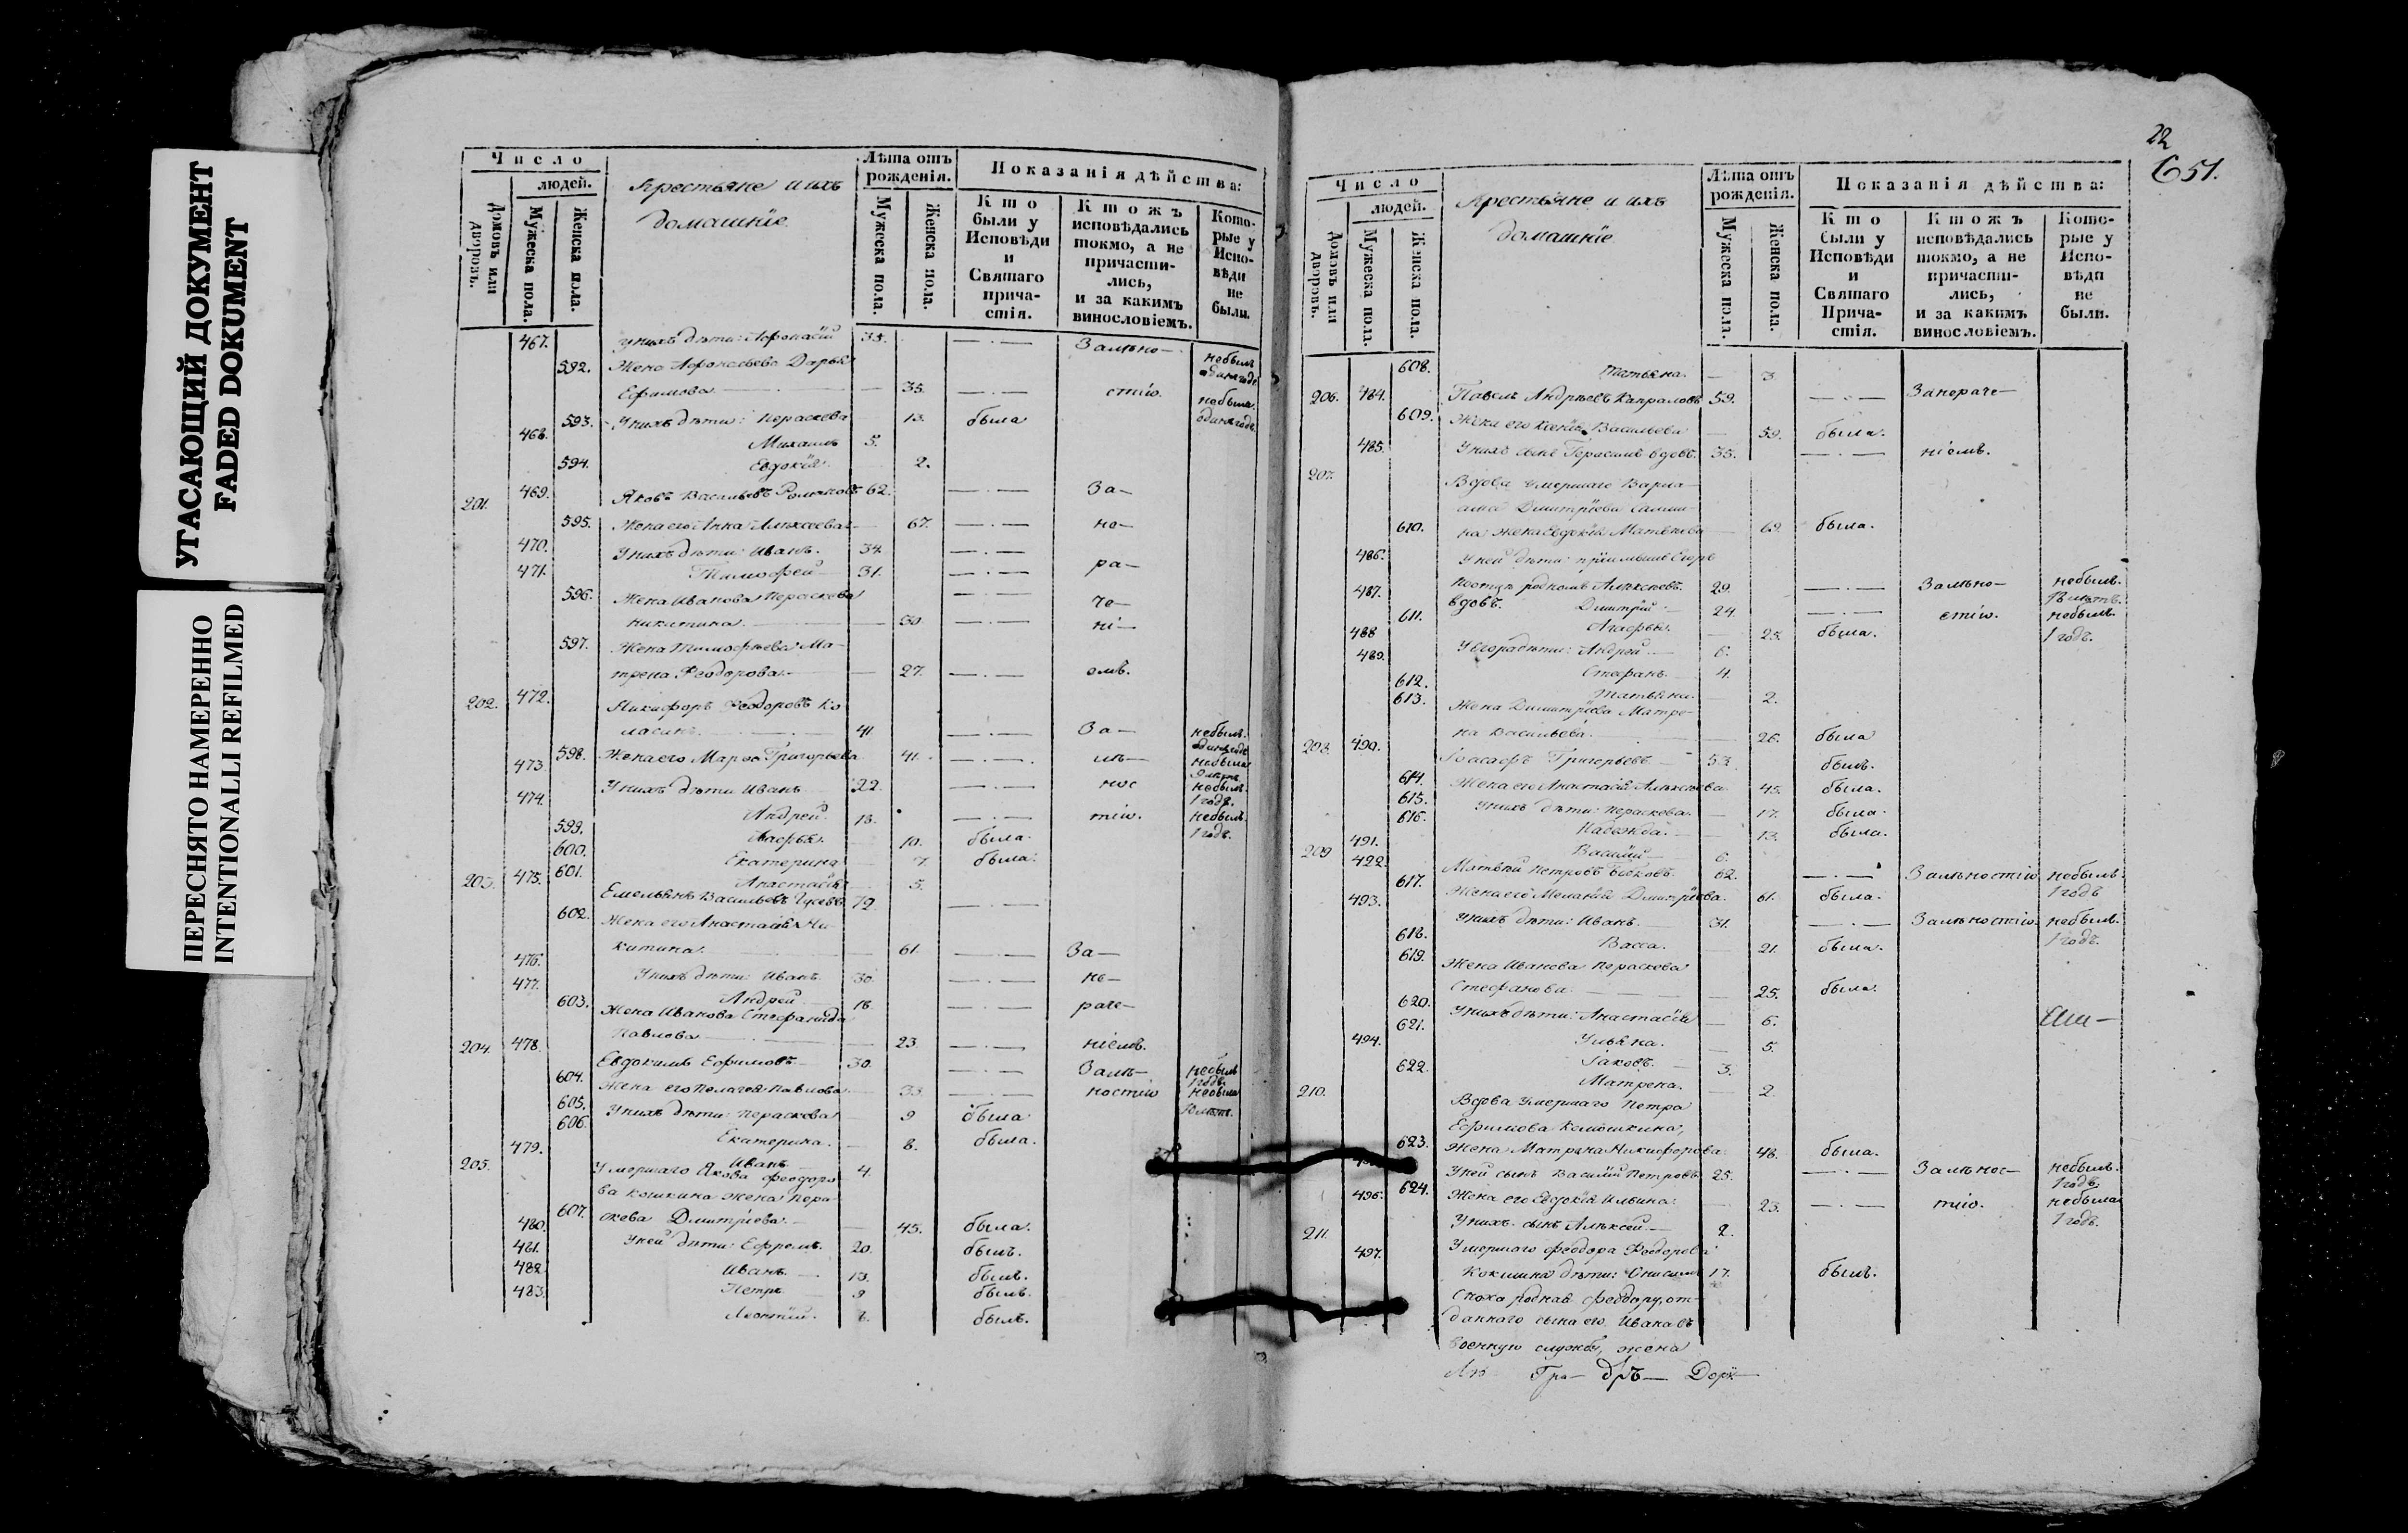 УГАСАЮЩИЙ ДОКУМЕНТ
FADED DOKUMENT
ПЕРЕСНЯТО НАМЕРЕННО
INTENTIONALLI REFILMED
Число
людей.
Домовъ или дворовъ.
Мужеска пола.
Женска пола.
Крестьяне и ихъ
домашніе
Лѣта отъ рожденія.
Мужеска пола.
Женска пола.
Показанія дѣйства:
Кто были у Исповѣди и Святаго причастія.
Ктожъ исповѣдались токмо, а не причастились, и за какимъ винословіемъ.
Которые у Исповѣди не были.
467. у нихъ дѣти: Афонасій 35. — . — Залѣно— небылъ
592. Жена Афонасьева Дарья одинъ годъ
Ефимова — 35. — . — стію. небыла
593. У нихъ дѣти: Параскева 13. была одинъ годъ
468. Михаилъ 5.
594. Евдокія 2.
201. 469. Яковъ Васильевъ 62. — . — За—
595. Жена его Анна Алексеева 67. — . — не—
470. У нихъ дѣти: Иванъ. 34. — . —
471. Тимофей 31. — . — ра—
596. Жена Иванова Пераскева — . — че—
Никитина. 30. — . — ні—
597. Жена Тимофѣева Ма—
трена Феодорова. 27. — . — емъ.
202. 472. Никифоръ Феодоровъ Ко
41 — . — За— небылъ.
598. Жена его Марѳа Григорьева 41. — . — лѣ— небыла
473. У нихъ дѣти Иванъ 22. — . — нос небылъ. 1 годъ.
474. Андрей. 18. — . — тію. небылъ. 1 годъ.
599. 10. была.
600. Екатерина 7. была.
601. Анастасія 5.
203. 475. Емельянъ Васильевъ Гусевъ 72. — . —
602. Жена его Анастасія Ни—
китина. 61. — . — За—
476. У нихъ дѣти: Иванъ. 30. — . — не—
477. Андрей 18. — . — раче—
603. Жена Иванова Стефанида
Павлова 23. — . — ніемъ.
204. 478. Евдокимъ Ефимовъ 30. — . — Залѣ— небылъ 1 годъ.
604. Жена его Пелагея Павлова 33. — . — ностію небыла
605. У нихъ дѣти: Пераскева 9 была
606. Екатерина. 8. была.
479. Иванъ 4.
205. Умершаго Якова Феодоро
ва Кошкина жена Пара
607. скева Дмитріева. 45. была.
480. У ней дѣти: Ефремъ. 20. былъ.
481. Иванъ. 13. былъ.
482. Петръ 9 былъ.
483. Леонтій. былъ.
22
651.
Число
людей.
Домовъ или дворовъ.
Мужеска пола.
Женска пола.
Крестьяне и ихъ
домашніе
Лѣта отъ рожденія.
Мужеска пола.
Женска пола.
Показанія дѣйства:
Кто были у Исповѣди и Святаго Причастія.
Ктожъ исповѣдались токмо, а не причастились, и за какимъ винословіемъ.
Которые у Исповѣди не были.
608. Татьяна. 3.
206. 484. Павелъ Андреевъ Капраловъ 59. — . — Занераче—
609. Жена его Ксенія Васильева 59. была.
485. У нихъ сынъ Герасимъ вдовъ. 35. — . — ніемъ.
207. Вдова умершаго
Дмитріева
610. на жена Евдокія Матвѣева 69. была.
486. У ней дѣти: Егоръ
29. — . — Залѣно— небылъ.
487. вдовъ. Димитрій 24. — . — стію. небылъ. 1 годъ.
611. Агафья. 25. была.
488 У Егора дѣти: Андрей 6.
489. Стефанъ. 4.
612. Татьяна. 2.
613. Жена Димитріева Матре—
на Васильева. 26. была
208. 490. Іоасафъ Григорьевъ 53. былъ.
614. Жена его Анастасія Алексѣева. 45. была.
615. У нихъ дѣти: Пераскева. 17. была.
616. Надежда. 13. была.
491. Василій 6.
209 422. Матвѣй Петровъ 62. — . — Залѣностію небылъ. 1 годъ
617. Жена его Меланія Дмитріева. 61. была.
493. У нихъ дѣти: Иванъ. 31. — . — Залѣностію. небылъ. 1 годъ.
618. Васса. 21. была.
619. Жена Иванова Пераскева
Стефанова. 25. была.
620. У нихъ дѣти: Анастасія 6.
621. Ульяна. 5.
494. Іаковъ. 3.
622. Матрена. 2.
210. Вдова умершаго Петра
Ефимова
623. жена Матрена Никифорова. 48. была.
У ней сынъ Василій Петровъ 25. — . — Залѣнос— небылъ. 1 годъ.
624. Жена его Евдокія Ильина. 23. — . — тію. небыла 1 годъ.
496. У нихъ сынъ Алексѣй. 2.
211. Умершаго Феодора Феодорова
497. дѣти: Онисимъ 17. былъ.
Сноха Феодору, от—
даннаго сына его Ивана въ
военную службу, жена